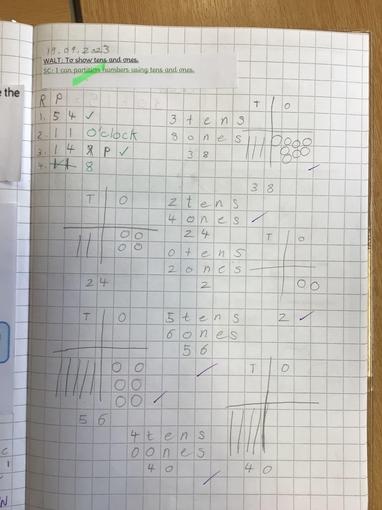 19.09.2023
WALT: To show tens and ones.
SC: I can partition numbers using tens and ones.
the
R P
1. 5 4 ✓
2. 1 1 O'clock
3. 1 4 8 P ✓
4. 8
3 tens
8 ones
3 8
T O
3 8
T O
2 4
2 tens
4 ones
2 4
0 tens
2 ones
2
T O
2
T O
5 6
5 tens
6 ones
5 6
T O
4 0
4 tens
0 ones
4 0